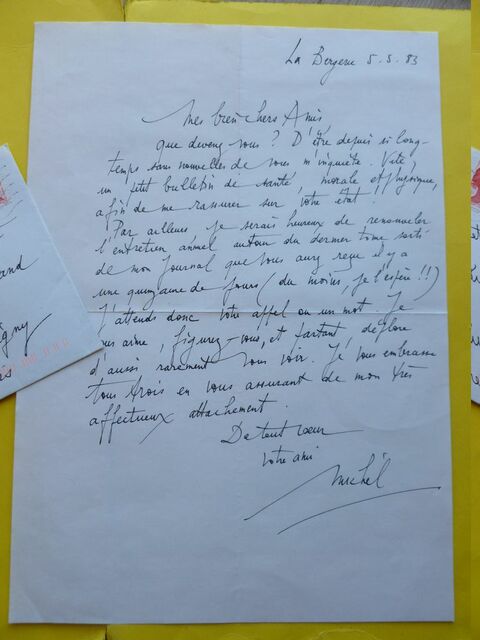 La Bergerie 5.5.83
Mes bien chers Amis
que devenez vous ? D'être depuis si long-
temps sans nouvelles de vous m'inquiète. Vite,
un petit bulletin de santé, morale et physique,
afin de me rassurer sur votre état !
Par ailleurs je serais heureux de renouveler
l'entretien annuel autour du dernier tome sorti
de mon Journal que vous avez reçu il y a
une quinzaine de jours (du moins, je l'espère !!)
J'attends donc votre appel ou un mot. Je
vous aime, figurez-vous, et partant déplore
d'aussi rarement vous voir. Je vous embrasse
tous trois en vous assurant de mon très
affectueux attachement.
De tout cœur
votre ami
Michel
and
igny